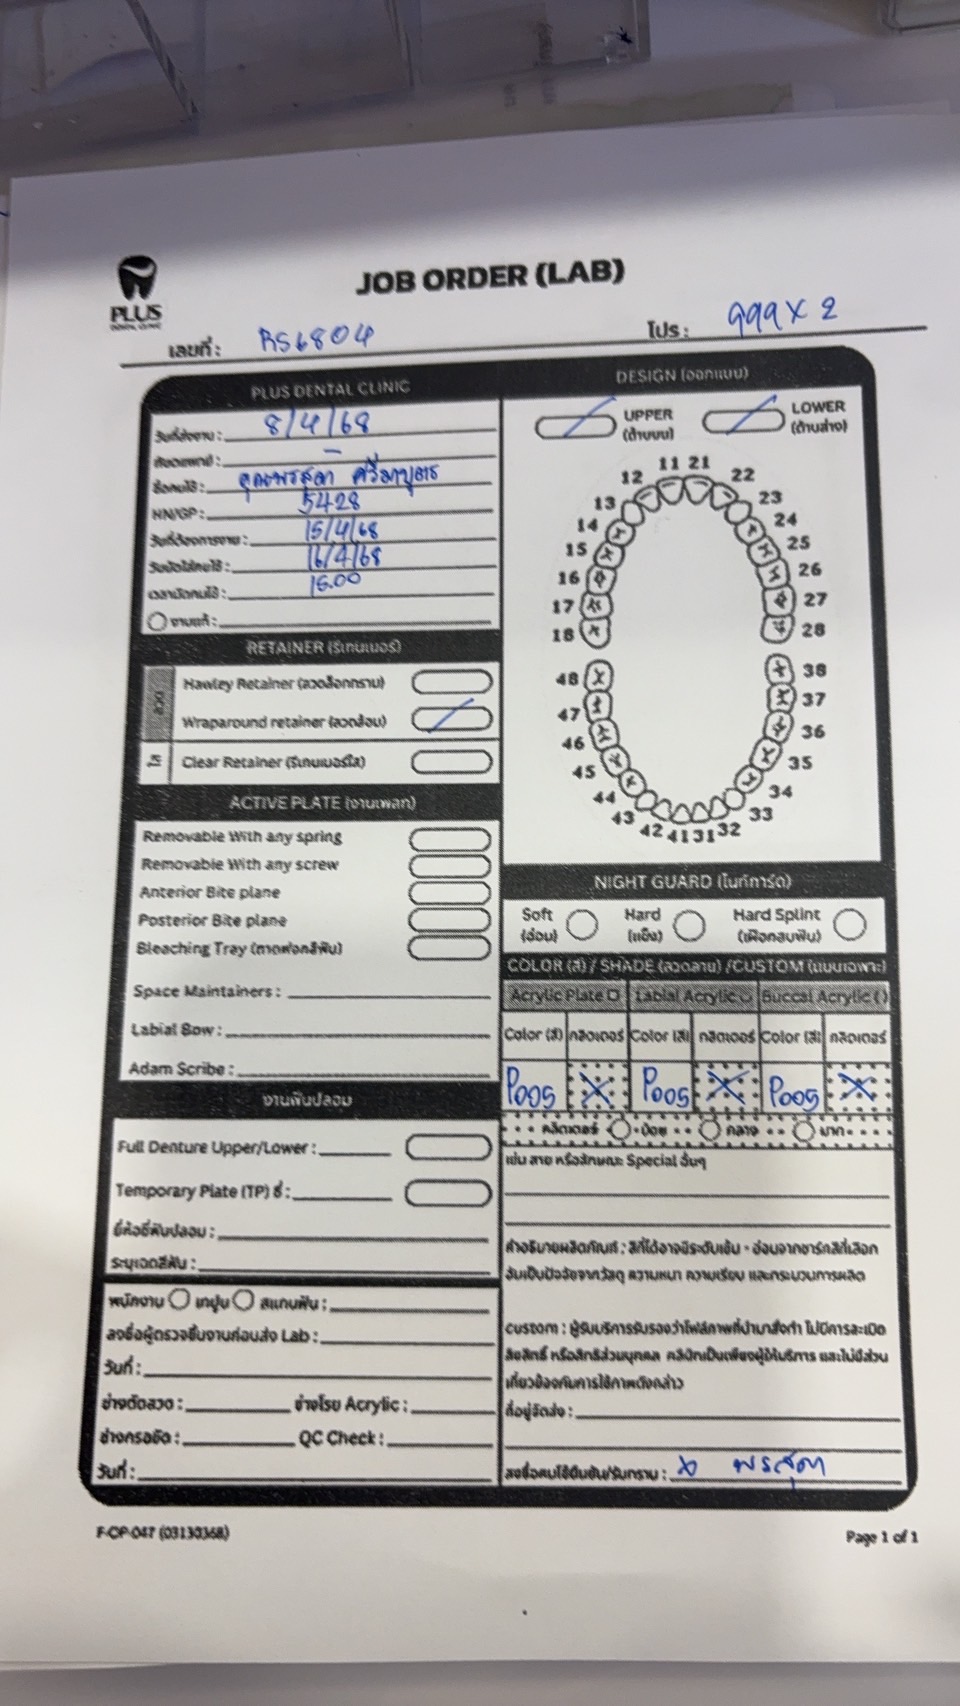 PLUS
DENTAL CLINIC
JOB ORDER (LAB)
เลขที่ : RS6804
โปร : 999 X 2
PLUS DENTAL CLINIC
วันที่ส่งงาน : 8/4/68
ชื่อแพทย์ : -
ชื่อคนไข้ : คุณพรสุดา ศรีมาบุตร
HN/GP : 5428
วันที่ต้องการงาน : 15/4/68
วันนัดใส่คนไข้ : 16/4/68
เวลานัดคนไข้ : 15.00
งานแก้ :
RETAINER (รีเทนเนอร์)
ลวด
Hawley Retainer (ลวดล็อกกราม)
Wraparound retainer (ลวดอ้อม)
ใส
Clear Retainer (รีเทนเนอร์ใส)
ACTIVE PLATE (งานเพลท)
Removable With any spring
Removable With any screw
Anterior Bite plane
Posterior Bite plane
Bleaching Tray (ถาดฟอกสีฟัน)
Space Maintainers :
Labial Bow :
Adam Scribe :
งานฟันปลอม
Full Denture Upper/Lower :
Temporary Plate (TP) ซี่ :
ยี่ห้อซี่ฟันปลอม :
ระบุเฉดสีฟัน :
พนักงาน เทปูน สแกนฟัน :
ลงชื่อผู้ตรวจชิ้นงานก่อนส่ง Lab :
วันที่ :
ช่างดัดลวด : ช่างโรย Acrylic :
ช่างกรอขัด : QC Check :
วันที่ :
DESIGN (ออกแบบ)
UPPER (ด้านบน)
LOWER (ด้านล่าง)
11 21
12 22
13 23
14 24
15 25
16 26
17 27
18 28
48 38
47 37
46 36
45 35
44 34
43 33
42 41 31 32
NIGHT GUARD (ไนท์การ์ด)
Soft (อ่อน)
Hard (แข็ง)
Hard Splint (เฝือกสบฟัน)
COLOR (สี) / SHADE (ลวดลาย) /CUSTOM (แบบเฉพาะ)
Acrylic Plate Labial Acrylic Buccal Acrylic ( )
Color (สี) กลิตเตอร์ Color (สี) กลิตเตอร์ Color (สี) กลิตเตอร์
P005 X P005 X P005 X
กลิตเตอร์ น้อย กลาง มาก
เช่น ลาย หรือลักษณะ Special อื่นๆ
คำอธิบายผลิตภัณฑ์ : สีที่ได้อาจมีระดับเข้ม - อ่อนจากชาร์ทสีที่เลือก
อันเป็นปัจจัยจากวัสดุ ความหนา ความเรียบ และกระบวนการผลิต
custom : ผู้รับบริการรับรองว่าไฟล์ภาพที่นำมาสั่งทำ ไม่มีการละเมิด
ลิขสิทธิ์ หรือสิทธิส่วนบุคคล คลินิกเป็นเพียงผู้ให้บริการ และไม่มีส่วน
เกี่ยวข้องกับการใช้ภาพดังกล่าว
ที่อยู่จัดส่ง :
ลงชื่อคนไข้ยืนยัน/รับทราบ : x พรสุดา
F-OP-047 (03130368)
Page 1 of 1